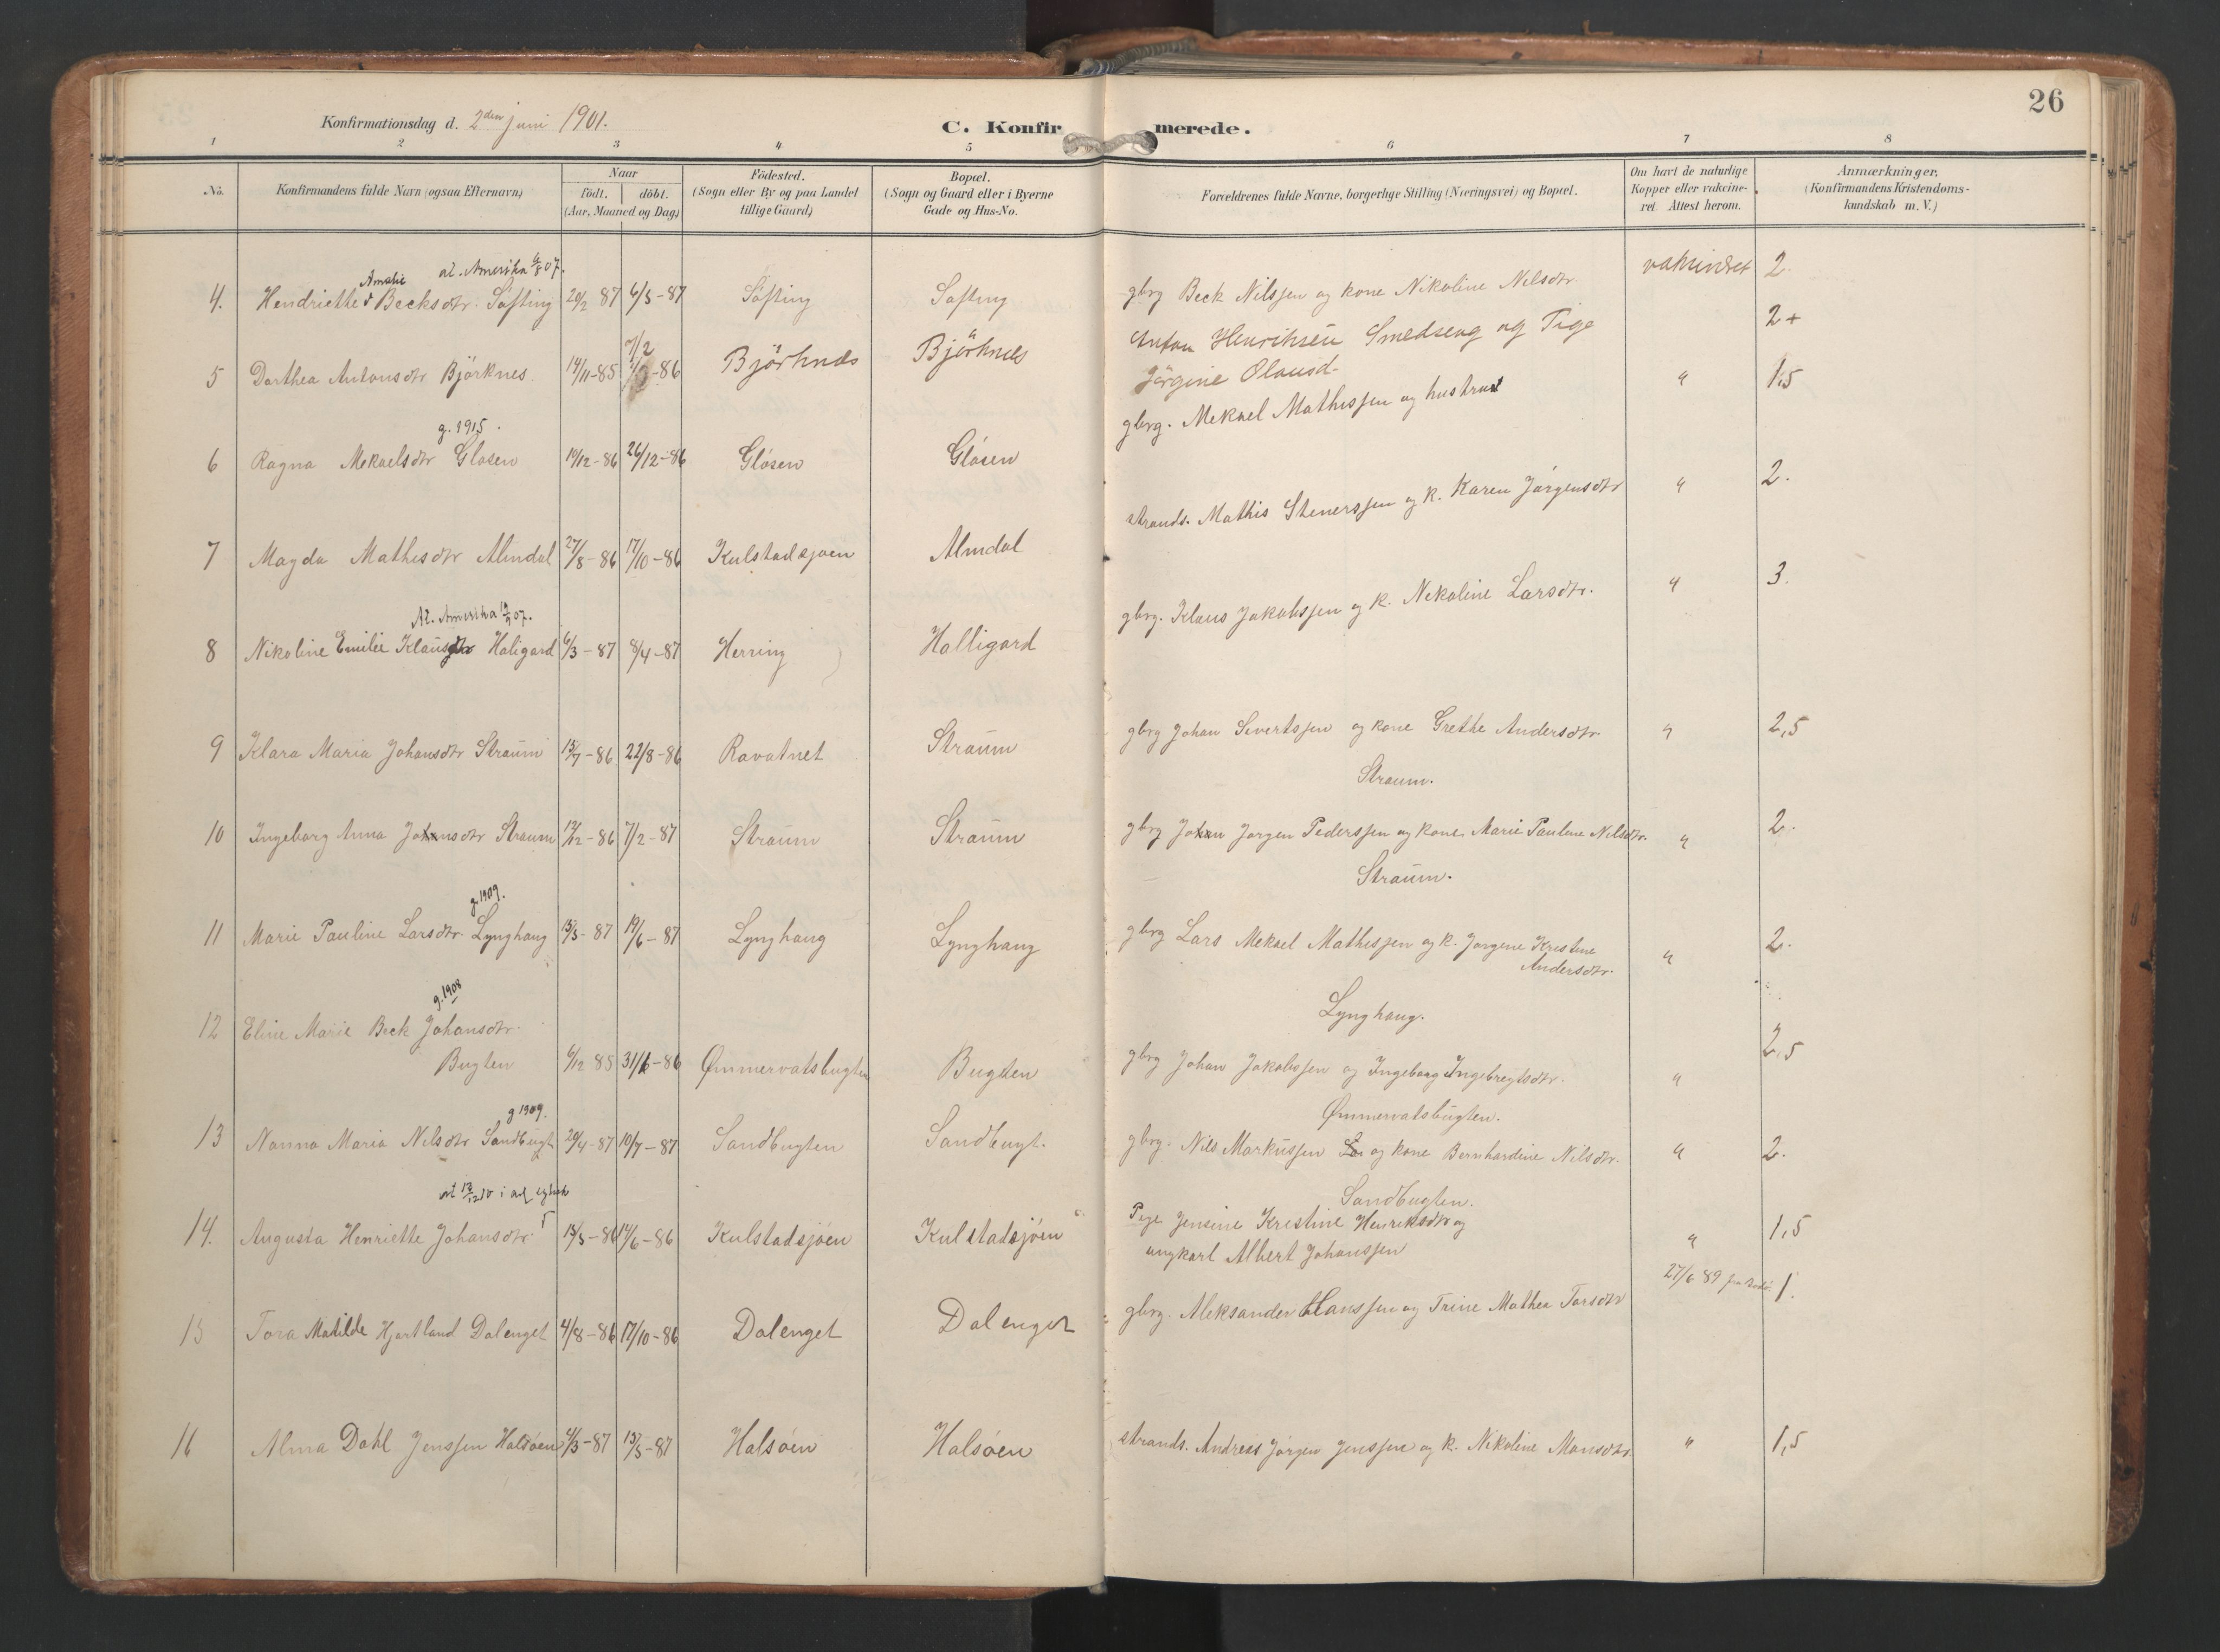 26
Konfirmationsdag d. 2den juni 1901.
C. Konfirmerede.
1 2 3 4 5 6 7 8
No. Konfirmandens fulde Navn (ogsaa Efternavn) Naar födt. döbt. (Aar, Maaned og Dag) Födested. (Sogn eller By og paa Landet tillige Gaard) Bopæl. (Sogn og Gaard eller i Byerne Gade og Hus-No. Forældrenes fulde Navne, borgerlige Stilling (Næringsvei) og Bopæl. Om havt de naturlige Kopper eller vakcineret. Attest herom. Anmærkninger, (Konfirmandens Kristendomskundskab m. V.)
Amalie ut. Amerika 6/8 07.
4. Hendriette Becksdtr. Søfting 20/2 87 6/5-87 Søfting Søfting gbrg Beck Nilssen og kone Nikoline Nilsdtr. vaksineret 2
7/2
5 Dorthea Antonsdtr Björknes 14/11-85 -86 Björknes Björknes Anton Henriksen Smedseng og Pige 2+
Jörgine Olausd-
g. 1915.
6 Ragna Mekaelsdtr Glosen 19/12-86 26/12-86 Glósen Glósen gbrg. Mekael Mathissen og hustru " 1,5
7 Magda Mathisdtr Almdal 27/8-86 17/10-86 Kulstadsjøen Almdal strands. Mathis Stenerssen og k. Karen Jørgensdtr " 2.
Ut. Amerika 07.
8 Nikoline Emilie Klausdtr Haligard 6/3-87 8/4-87 Herring Halligard gbrg. Klaus Jakobssen og k. Nekoline Larsdtr. " 3.
9 Klara Maria Johansdtr Straum 15/7-86 22/8-86 Ravatnet Straum gbrg Johan Sivertssen og kone Grethe Andersdtr. " 2,5
Straum.
10 Ingeborg Anna Johansdtr Straum 12/12-86 7/2-87 Straum Straum gbrg Johan Jorgen Pederssen og kone Marie Pauline Nilsdtr. " 2.
Straum.
g. 1909.
11 Marie Pauline Larsdtr. Lynghaug 13/5-87 19/6-87 Lynghaug Lynghaug gbrg Lars Mekael Mathissen og k. Jorgine Kristine " 2.
Andersdtr.
Lynghaug.
g. 1908
12 Eline Marie Beck Johansdtr.
Bugten 6/12 85 31/1-86 Ømmervatsbugten Bugten gbrg Johan Jakobssen og Ingeborg Ingebregtsdtr. " 2,5
Ømmervatsbugten.
g 1909.
13 Nanna Maria Nilsdtr Sandbugt 29/4-87 10/7-87 Sandbugten Sandbugt. gbrg. Nils Markussen og kone Bernhardine Nilsdtr. " 2.
Sandbugten.
14. Augusta Henriette Johansdtr 15/5-86 14/6-86 Kulstadsjøen Kulstadsjöen Pige Jensine Kristine Henriksdtr og " 1,5
ungkarl Albert Johanssen
27/6 89
15 Tora Matilde Hjortland Dalenget 4/8-86 17/10-86 Dalenget Dalenget gbrg. Aleksander Hanssen og Trine Mathea Torsdtr 1.
16 Alma Dahl Jenssen Halsöen 4/3-87 15/5-87 Halsöen Halsöen strands. Andreas Jörgen Jenssen og k. Nikoline Monsdtr. " 1,5